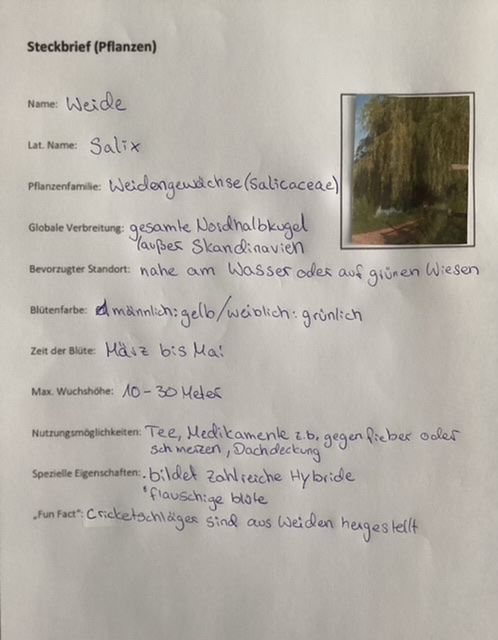 Steckbrief (Pflanzen)
Name: Weide
Lat. Name: Salix
Pflanzenfamilie: Weidengewächse (Salicaceae)
Globale Verbreitung: gesamte Nordhalbkugel
/außer Skandinavien
Bevorzugter Standort: nahe am Wasser oder auf grünen Wiesen
Blütenfarbe: männlich: gelb/weiblich: grünlich
Zeit der Blüte: März bis Mai
Max. Wuchshöhe: 10-30 Meter
Nutzungsmöglichkeiten: Tee, Medikamente z.b. gegen fieber oder
schmerzen, Dachdeckung
Spezielle Eigenschaften: · bildet zahlreiche Hybride
· flauschige blüte
„Fun Fact“: Cricketschläger sind aus Weiden hergestellt